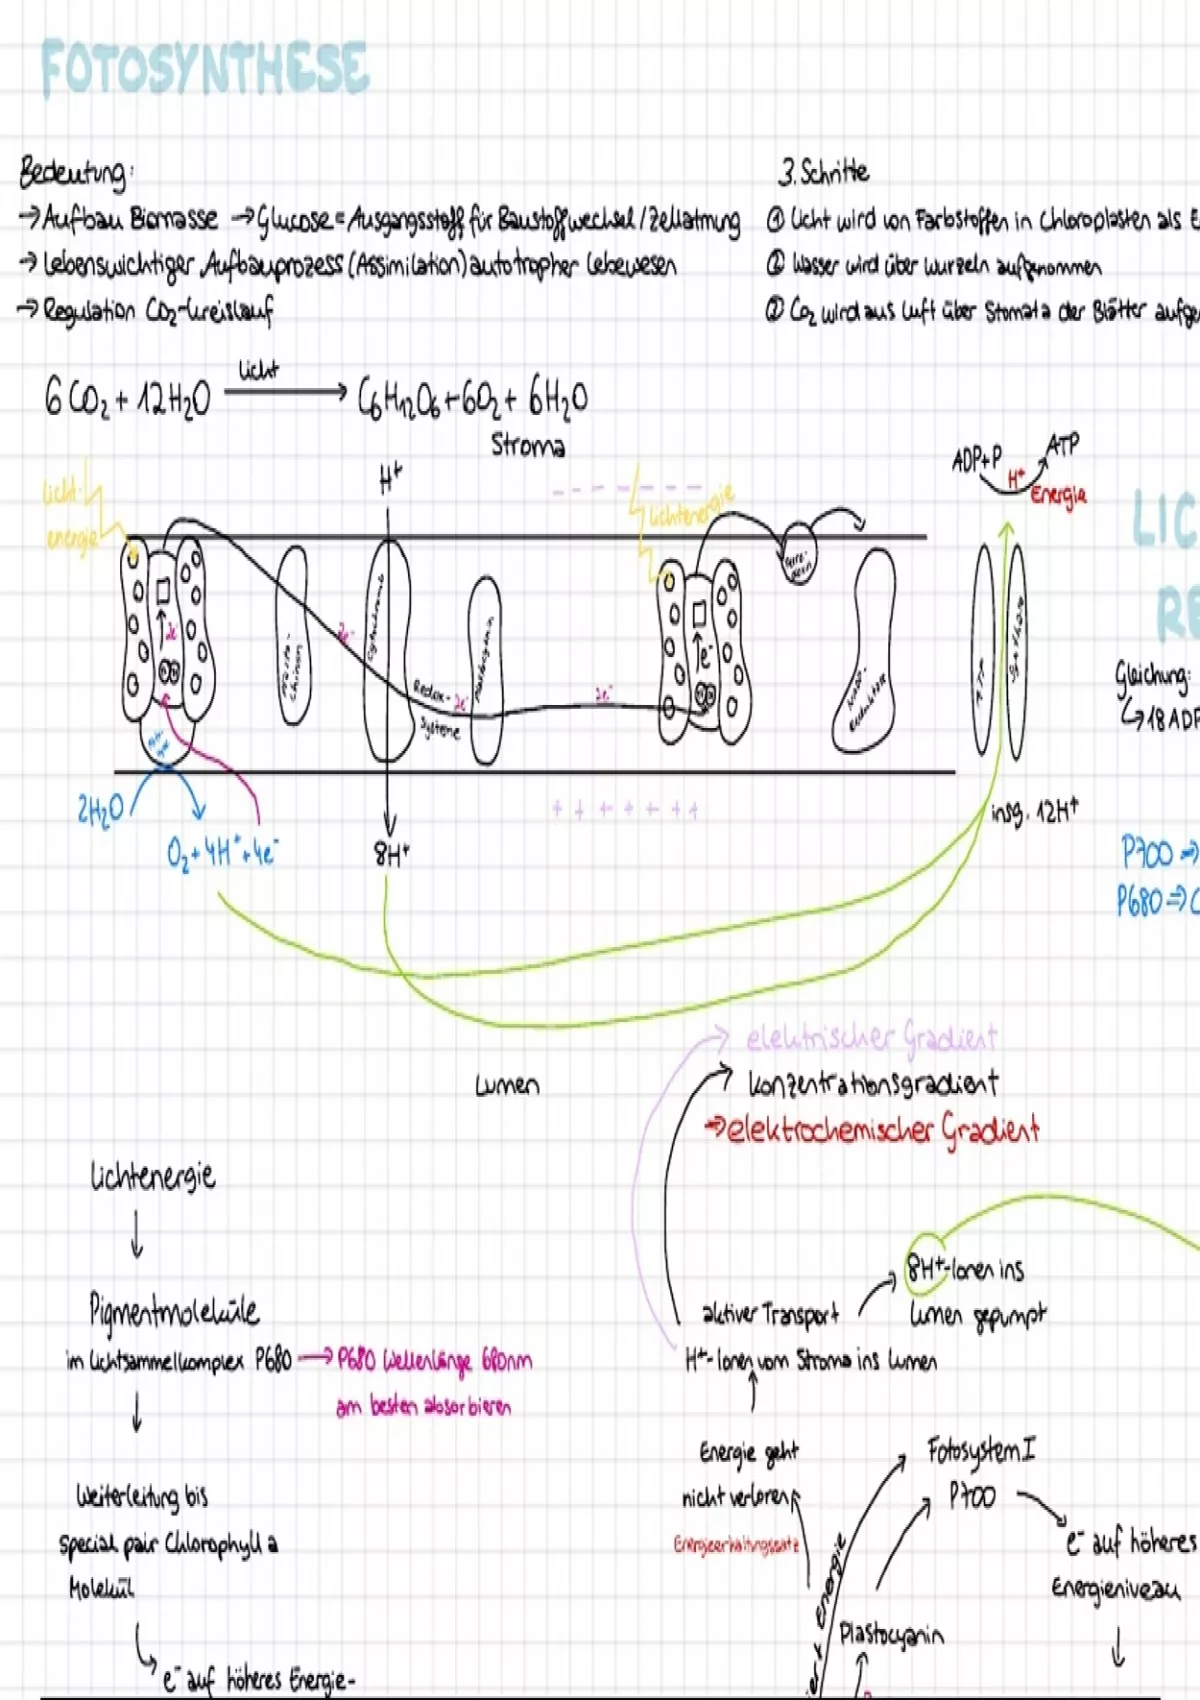 FOTOSYNTHESE
Bedeutung:
→ Aufbau Biomasse → Glucose = Ausgangsstoff für Baustoffwechsel / Zellatmung
→ Lebenswichtiger Aufbauprozess (Assimilation) autotropher Lebewesen
→ Regulation CO₂-Kreislauf
3. Schritte
① Licht wird von Farbstoffen in Chloroplasten als E
② Wasser wird über Wurzeln aufgenommen
③ CO₂ wird aus Luft über Stomata der Blätter aufge
6 CO₂ + 12 H₂O Licht → C₆H₁₂O₆ + 6O₂ + 6H₂O
Stroma
Licht-
energie
H⁺
- - - - - - -
Lichtenergie
ADP+P
H⁺
ATP
Energie
LIC
RE
2e⁻
chinon
2e⁻
Cytochrome
Redox-
systeme
2e⁻
Plastocyanin
2e⁻
e⁻
Reduktase
Gleichung:
↳ 18 ADP
2H₂O
O₂ + 4H⁺ + 4e⁻
8H⁺
+ + + + + + +
insg. 12H⁺
P700 ⇒
P680 ⇒ C
Lumen
elektrischer Gradient
Konzentrationsgradient
⇒ elektrochemischer Gradient
Lichtenergie
Pigmentmoleküle
im Lichtsammelkomplex P680 → P680 Wellenlänge 680nm
am besten absorbieren
Weiterleitung bis
special pair Chlorophyll a
Molekül
e⁻ auf höheres Energie-
aktiver Transport
H⁺-Ionen vom Stroma ins Lumen
8H⁺-Ionen ins
Lumen gepumpt
Energie geht
nicht verloren
Energieerhaltungssatz
Fotosystem I
P700
e⁻ auf höheres
Energieniveau
Energie
Plastocyanin